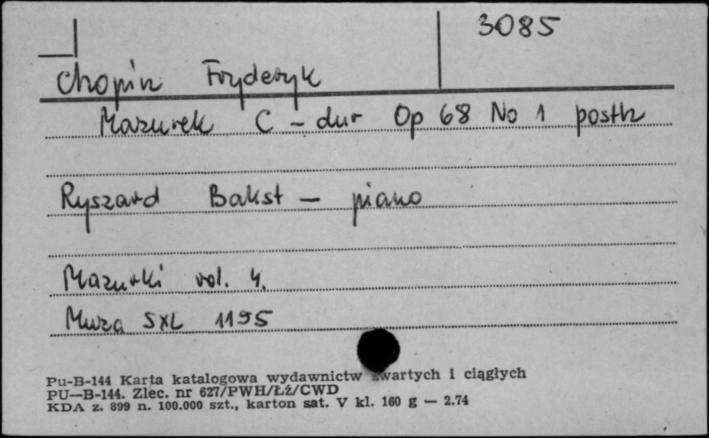 3085
Chopin Fryderyk
Mazurek C - dur Op 68 No 1 posth
Ryszard Bakst - piano
Mazurki vol. 4.
Muza SXL 1195
Pu-B-144 Karta katalogowa wydawnictw zwartych i ciągłych
PU—B-144. Zlec. nr 627/PWH/ŁŻ/CWD
KDA z. 899 n. 100.000 szt., karton sat. V kl. 160 g — 2.74